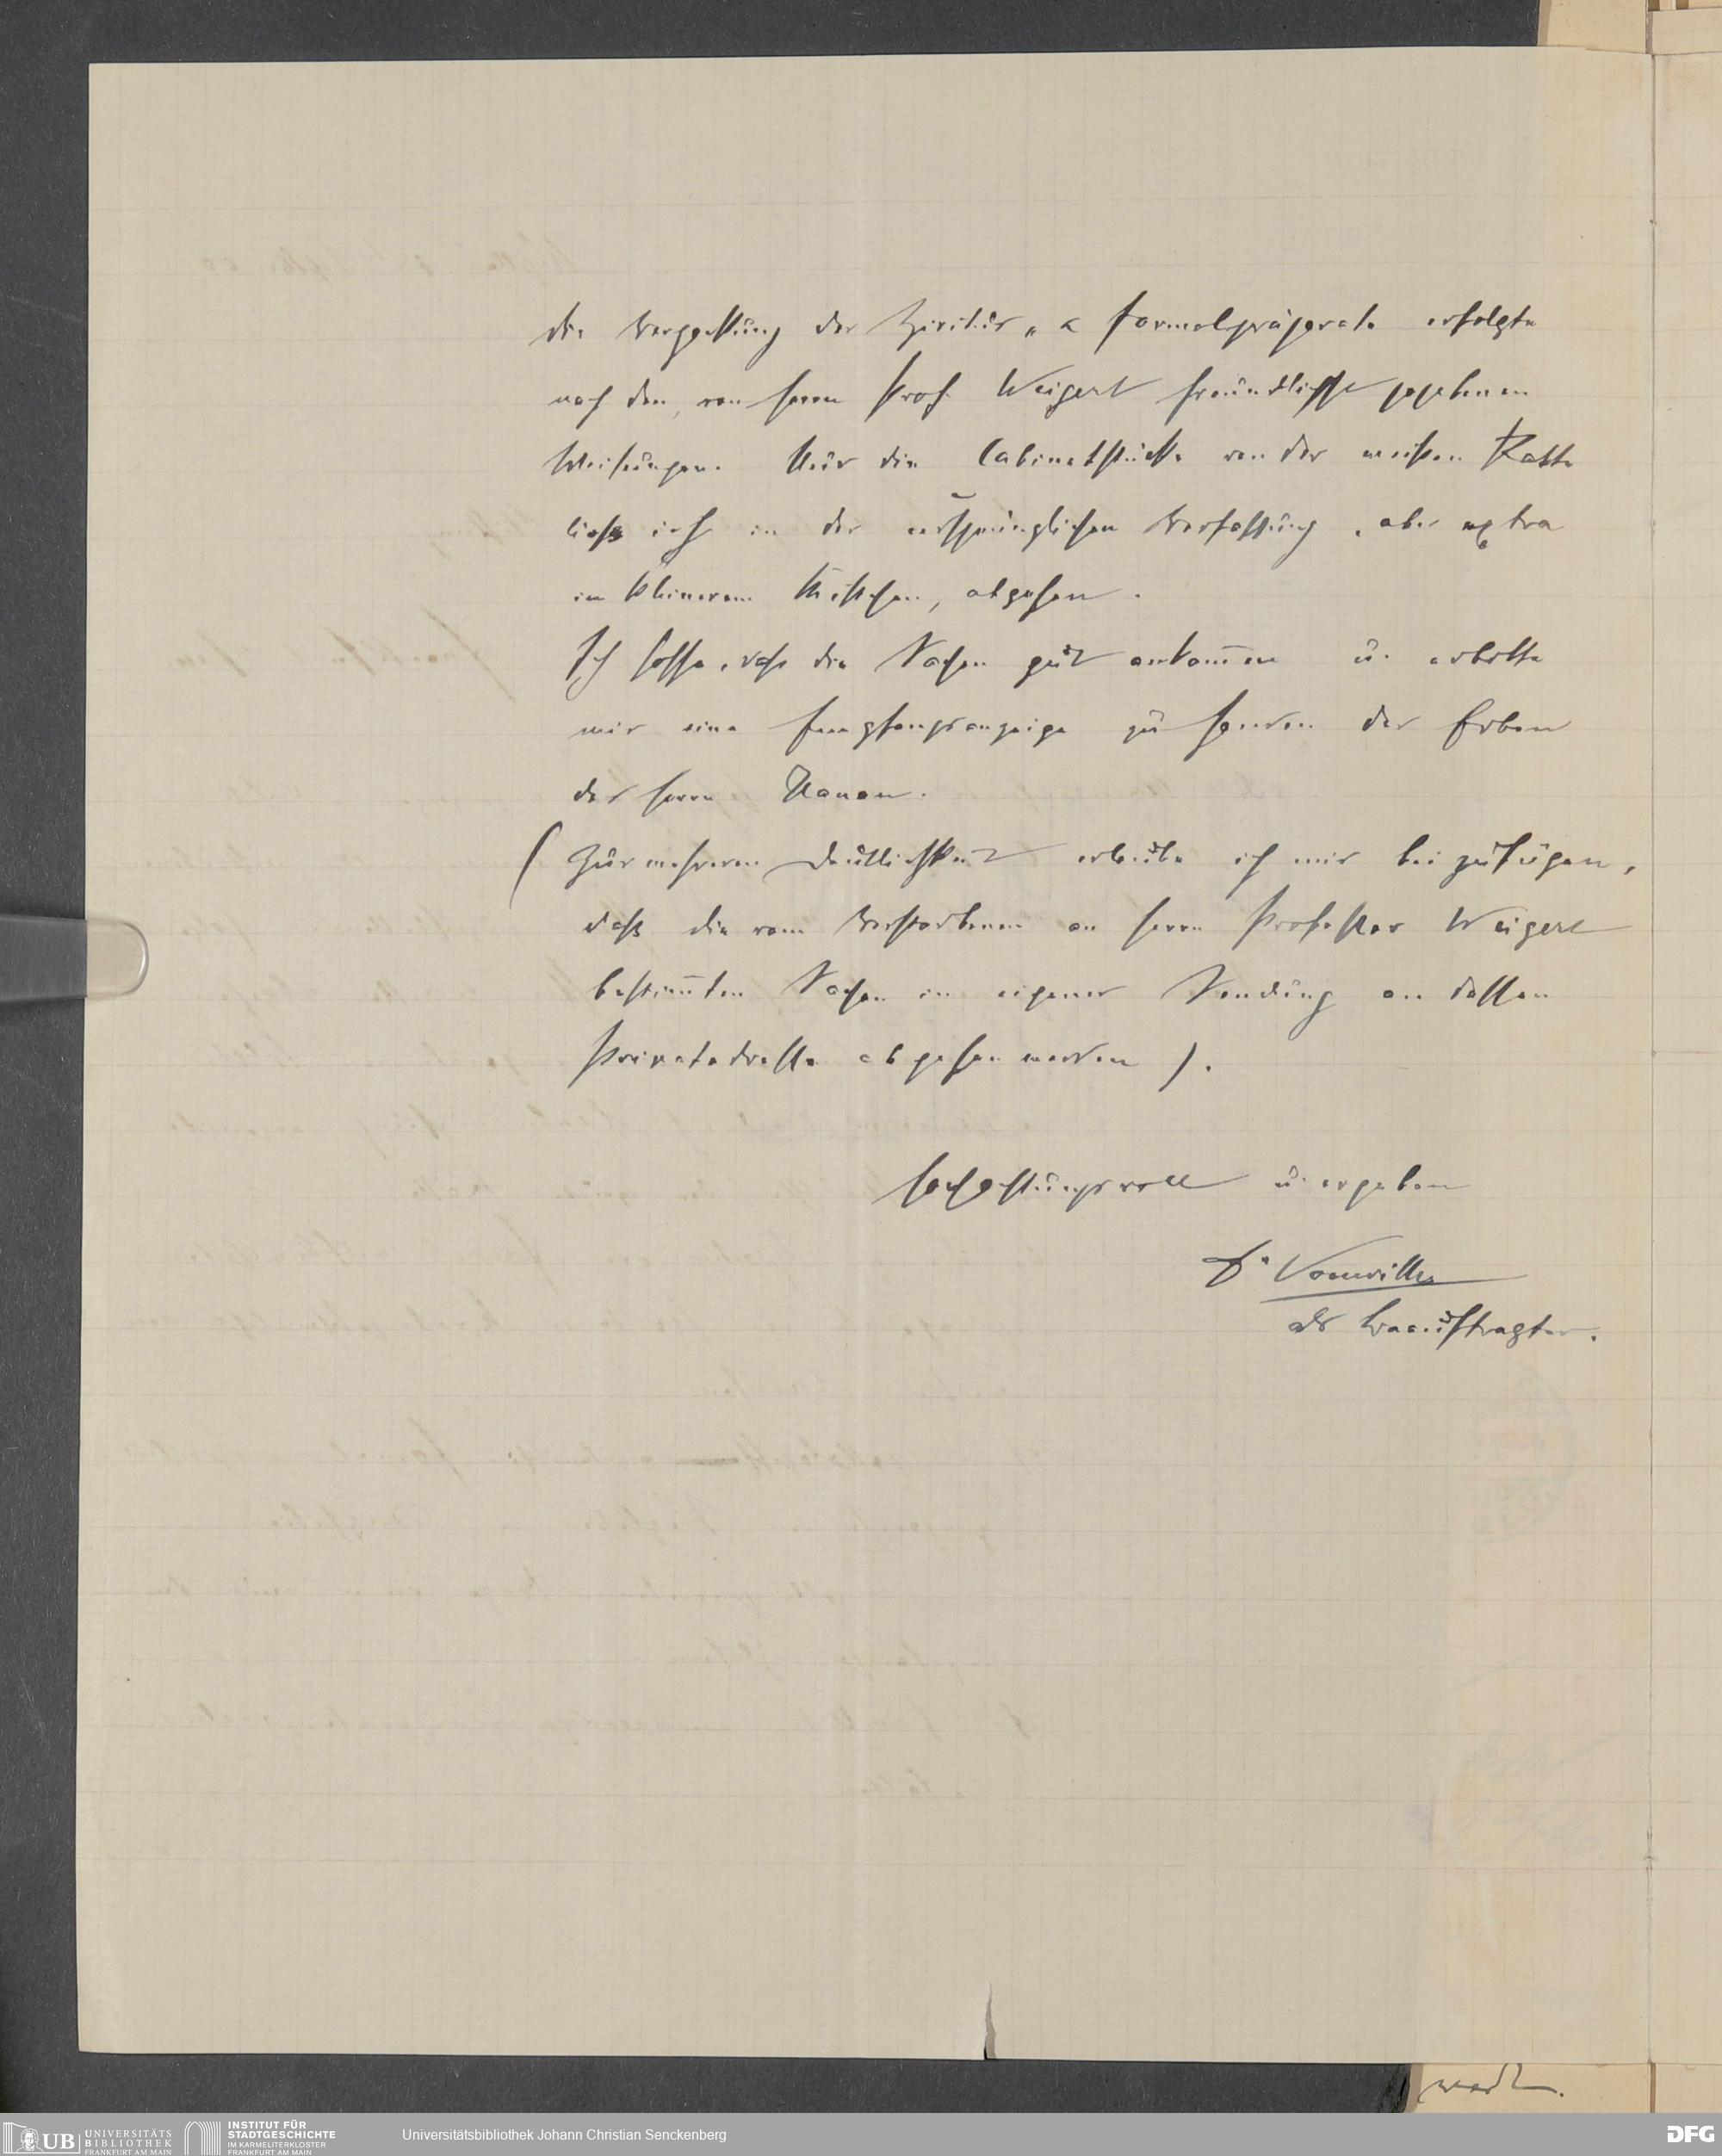 die Verpackung der Spiritus „ & Formolpräparate erfolgte
nach den, von Herrn Prof. Weigert freundlichst gegebenen
Weisungen. Nur die Cabinetstücke von der weißen Ratte
ließ ich in der ursprünglichen Verfassung, aber extra
in kleineren Kistchen, abgehen.
Ich hoffe, daß die Sachen gut ankom̅en u. erbitte
mir eine Empfangsanzeige zu Handen der Erben
des Herrn
(Zur mehreren Deutlichkeit erlaube ich mir beizufügen,
daß die vom Verstorbenen an Herrn Professor Weigert
bestim̅ten Sachen in eigener Sendung an dessen
Privatadresse abgehen werden).
Hochachtungsvoll u. ergeben
Dr Vonwiller
als Beauftragter.
UB UNIVERSITÄTS
BIBLIOTHEK
FRANKFURT AM MAIN
INSTITUT FÜR
STADTGESCHICHTE
IM KARMELITERKLOSTER
FRANKFURT AM MAIN
Universitätsbibliothek Johann Christian Senckenberg
DFG